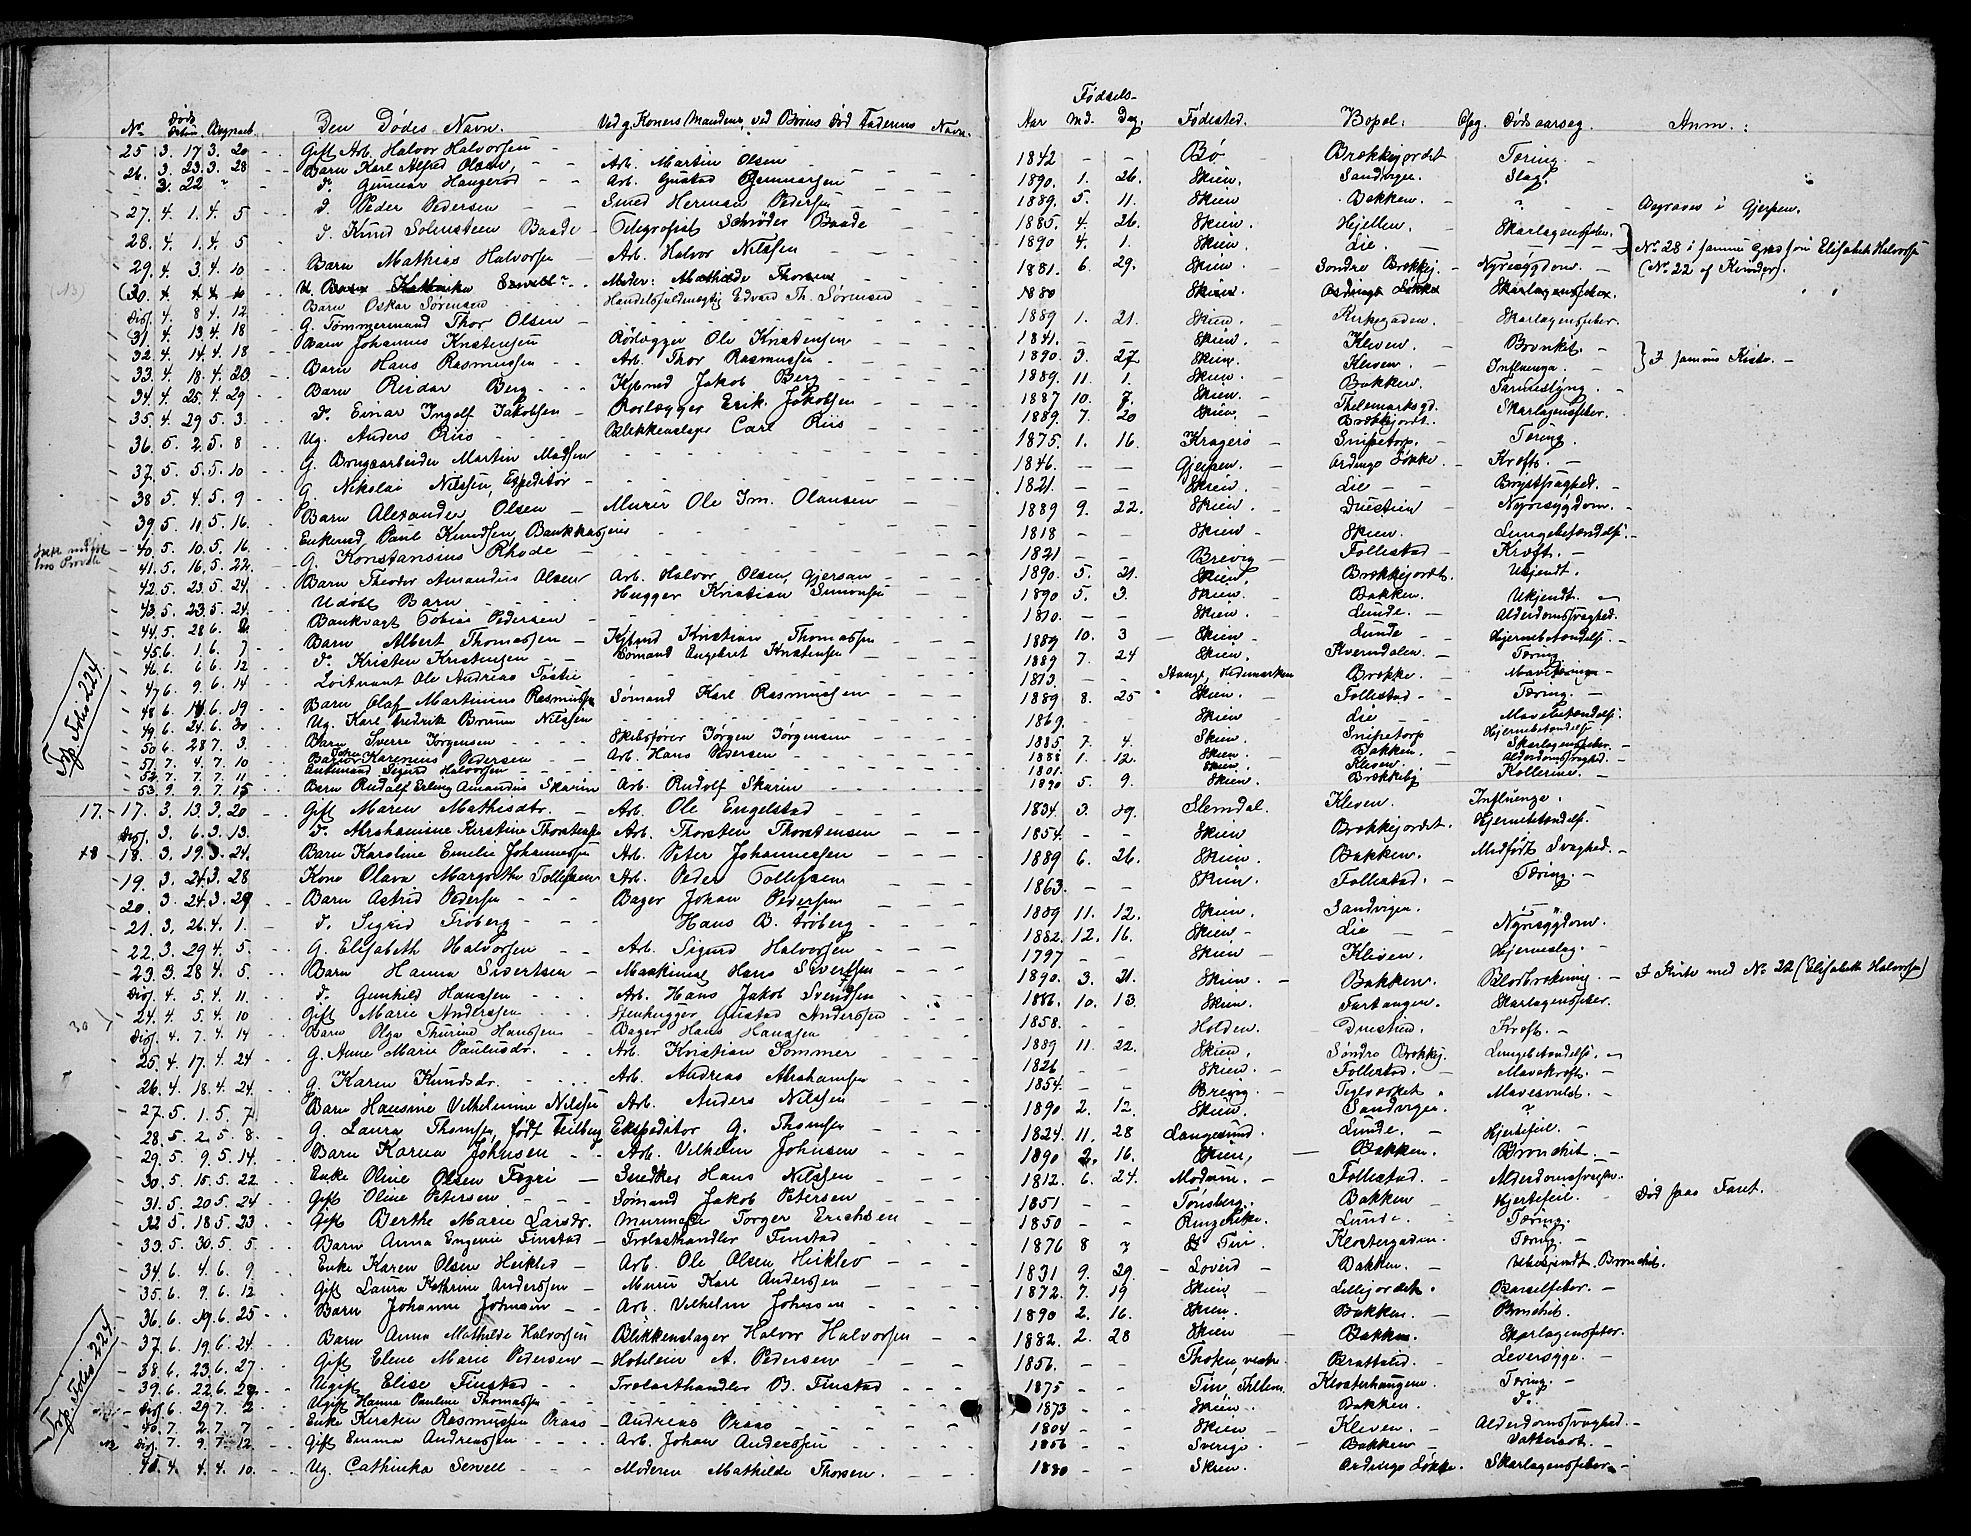 No Døds Datum Begravet. Den Dødes Navn. Ved g. Koners Mandens, ved Børns Død Faderens Navn. Aar Fødsels- Md. Dag. Fødested. Bopæl: Opg. Dødsaarsag. Anm.:
25 3. 17 3. 20 Gift Arb. Halvor Halvorsen 1842 Bø Brækkejordet Tæring.
26. 3. 23. 3. 28 Barn Karl Alfred Olsen, Arb. Martin Olsen 1890. 1. 26. Skien. Sandvigen. Slag.
3. 22 " d. Gunnar Haugerød Arb. Gustav Gunnarsen 1889. 5. 11. Skien Bakken. ? Begraves i Gjerpen.
27. 4. 1. 4. 5 d. Peder Pedersen Smed Herman Pedersen 1885. 4. 26. Skien. Hjellen. Skarlagensfeber.
28. 4. 1. 4. 5 d. Knud Solmsteen Baade Telegrafist Schrøder Baade 1890 4. 1. Skien. Lie. No 28 i samme Grav som Elisabeth Halvorsen (No 22 af Kvinder).
29. 4. 3. 4. 10 Barn Mathias Halvorsen Arb. Halvor Nilssen 1881. 6. 29. Skien. Søndre Brækkej. Nyresygdom.
(13) (30. 4. 4. 4. 10 U. Barn Kathinka Sewell Moder: Mathilde Thorsen 1880 Skien. Ordings Løkke Skarlagensfeber.
Disf. 4. 8 4. 12 Barn Oskar Sørensen Handelsfuldmegtig Edvard Th. Sørensen 1889 1. 21. Skien. Kirkegaden. Skarlagensfeber.
31. 4. 13 4. 18 G. Tømmermand Thor Olsen 1841. Skien. Kleven. Bronkit.
32. 4. 14. 4. 18 Barn Johannes Kristensen Rørlægger Ole Kristensen 1890. 3. 27. Skien. Kleven. Influenza. } I samme Kiste.
33. 4. 18. 4. 20. Barn Hans Rasmussen Arb. Thor Rasmussen 1889. 11. 1. Skien. Bakken. Tarmeslyng.
34. 4. 25. 4. 29 Barn Reidar Berg Kjbmd Jakob Berg 1887 10. 7. Skien. Thelemarksgd. Skarlagensfeber.
35. 4. 29 5. 3. d. Einar Ingolf Jakobsen Rørlægger Erik Jakobsen 1889. 7. 20 Skien. Brækkejordt.
36. 5. 2. 5. 8 Ug. Anders Riis Blikkenslager Carl Riis 1875. 1. 16. Kragerø Snipetorp. Tæring.
37. 5. 5. 5. 10 G. Brugsarbeider Martin Madsen 1846. Gjerpen. Ordings Løkke. Kræft.
38 5. 4. 5. 9 G. Nikolai Nilssen, Expeditør 1821. Skien. Lie Brystsvaghed.
39. 5. 11. 5. 16. Barn Alexander Olsen Murer Ole Im. Olausen 1889 9. 22. Skien. Duestien Nyresygdom.
40. 5. 10. 5. 16. Enkemd Paul Knudsen, Bankkasserer 1818 Skien Skien. Lungebetændelse.
41. 5. 16. 5. 22. G. Konstansius Rhode 1821 Brevig Follestad Kræft.
42. 5. 23. 5. 24 Barn Theodor Amandus Olsen Arb. Halvor Olsen, Gjersan 1890. 5. 21. Skien. Brækkejordet. Ukjendt.
43. 5. 23. 5. 24. Udøbt Barn Hugger Kristian Simonsen 1890 5. 3. Skien. Bakken. Ukjendt.
44. 5. 28 6. 2. Bankvagt Tobias Pedersen 1810. Skien. Lunde. Alderdomssvaghed.
45. 6. 1. 6. 7 Barn Albert Thomassen Kjbmd Kristian Thomassen 1889 10. 3 Skien Lunde Hjernebetændelse.
46. 6. 6 6. 12 d. Kristen Kristensen Sømand Engebret Kristensen 1889 7. 24 Skien. Kverndalen. Tæring.
47 6. 9. 6. 14 Loitnant Ole Andreas Tostie 1813 Stange, Hedemarken Brække. Mavetæring
48 6. 14. 6. 19 Barn Olaf Martinius Rasmussen Sømand Karl Rasmussen 1889 8. 25 Skien. Follestad Tæring.
49. 6. 24. 6. 30 Ug. Karl Fredrik Bruun Nilssen 1869. Skien Lie Mavebetændelse.
50 6. 28 7. 3. Barn Sverre Jørgensen Skibsfører Jørgen Jørgensen 1885 7. 4. Skien. Snipetorp Hjernebetændelse
51. 7. 4. 7. 10 Barn John Karenius Pedersen Arb. Hans Pedersen 1888 1. 12. Skien. Bakken. Skarlagensfeber.
52. 7. 7. 7. 11 Enkemand Sigurd Halvorsen 1801. Skien. Kleven. Alderdomssvaghed.
53. 9. 9. 7. 15 Barn Rudolf Erling Amandus Skarin Arb. Rudolf Skarin 1890 5. 9. Skien. Brækkebj Kollerine.
Trp. Folio 224
17. 17. 3. 13. 3. 20 Gift Maren Mathisdtr. Arb. Ole Engelstad 1834. 3. 29. Slemdal. Kleven. Influenza.
Disf. 3. 6. 3. 13. d. Abrahamine Kirstine Thorstensen Arb. Thorsten Thorstensen 1854. Skien Brækkejordet. Hjernebetændelse.
18 18. 3. 19. 3. 24. Barn Karoline Emilie Johannessen Arb. Peter Johannessen 1889 6. 26. Skien. Bakken. Medfødt Svaghed.
19. 3. 24. 3. 28 Kone Olava Margrethe Tollefsen Arb. Peder Tollefsen 1863. Skien. Follestad. Tæring.
20. 3. 24. 3. 29 Barn Astrid Pedersen Bager Johan Pedersen 1889 11. 12. Skien. Sandvigen. "
21. 3. 26. 4. 1. d. Sigrid Frøberg Hans B. Frøberg 1882. 12. 16. Skien Lie Nyresygdom.
22. 3. 29 4. 5. G. Elisabeth Halvorsen Arb. Sigurd Halvorsen 1797 Skien Kleven. Hjerneslag.
23. 3. 28 4. 5. Barn Hanna Sivertsen Maskinist Hans Sivertsen 1890. 3. 21. Skien. Bakken. Blodbrækning. I Kiste med No 22 (Elisabeth Halvorsen)
Disf. 4. 5. 4. 11. d. Gunhild Hanssen Arb. Hans Jakob Svendsen 1886. 10. 13. Skien. Fartangen. Skarlagensfeber.
24. 4. 5. 4. 10 Gift Marie Anderssen Stenhugger Gustav Anderssen 1858. Holden. Duestien. Kræft.
30 Disf. 4. 7. 4. 14 Barn Olga Thurine Hanssen Bager Hans Hanssen 1889 11. 22. Skien. Søndre Brækkej. Lungebetændelse.
25. 4. 17. 4. 24 G. Anne Marie Paulusdr. Arb. Kristian Sommer 1826 Skien. Follestad. Mavekræft.
26. 4. 18. 4. 24. G. Karen Knudsdr. Arb. Andreas Abrahamsen 1854. Brevig. Teglværket Mavesvulst.
27. 5. 1. 5. 7 Barn Hansine Vilhelmine Nilssen Arb. Anders Nilssen 1890 2. 12. Skien. Sandvigen. ?
28. 5. 2. 5. 8. G. Laura Thomsen, født Feilberg Ekspeditør G. Thomsen 1824. 11. 28 Langesund. Lunde. Hjertefeil.
29. 5. 9. 5. 14. Barn Karna Johnsen Arb. Vilhelm Johnsen 1890 2. 16. Skien, Bakken. Bronchit
30. 5. 15. 5. 22 Enke Oline Olsen Fegri Snedker Hans Nilssen 1812. 6. 24. Modum. Follestad. Alderdomssvaghed.
31. 5. 20 5. 24 Gift Oline Petersen Sømand Jakob Petersen 1851 Tønsberg. Bakken Hjertefeil. Død paa Faret.
32 5. 18 5. 23 Gift Berthe Marie Larsdr. Murmester Torger Erichsen 1850 Ringerike. Lunde. Tæring.
33. 5. 30. 5. 5. Barn Anna Engenie Finstad Trælasthandler Finstad 1876 8 ? Tin. Klostergaden. Tæring.
34. 6. 4. 6. 9 Enke Karen Olsen Heiklev Arb. Ole Olsen Heiklev 1831 9. 29. Bakken. Ubekjendt. Bronchit.
35. 6. 7. 6. 12 Gift Laura Kathrine Anderssen Murer Karl Anderssen 1872. 7. 19 Skien Lillejordet. Barselfeber.
36. 6. 19. 6. 25 Barn Johanne Johnsen Arb. Vilhelm Johnsen 1890 2. 16. Skien. Bakken Bronchit.
37. 6. 19 6. 24. Barn Anna Mathilde Halvorsen Blikkenslager Halvor Halvorsen 1882. 2. 28 Skien Bakken. Skarlagensfeber.
38. 6. 23 6. 27 Gift Elene Marie Pedersen Hoteleier A. Pedersen 1856. Brattelid. Leversyge.
39. 6. 22 6. 28 Ugift Elise Finstad Trælasthandler B. Finstad 1875 Tin, Klosterhaugen Tæring.
Disf. 6 29 7. 2 Ugift Hanna Pauline Thomassen 1873 Skien. Bakken. d.
40. 7. 2. 7. 7 Enke Kirsten Rasmussen Praas Andreas Praas 1804 Skien Kleven. Alderdomssvaghed.
Disf. 7. 9. 7. 12. Gift Emma Andreassen Arb. Johan Anderssen 1856 Sverige Bakken Vattersot.
41. 4. 4. 4. 10. Ug. Cathinka Sewell Moderen Mathilde Thorsen. 1880 Skien. Ordings Løkke. Skarlagensfeber.
Trp. Folio 224